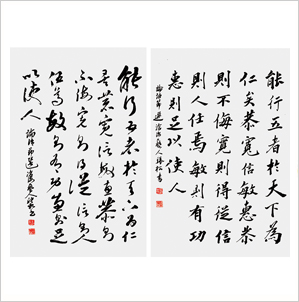 能行五者於天下為
仁矣恭寬信敏惠恭
則不侮寬則得眾信
則人任焉敏則有功
惠則足以使人
論語節選
能行五者於天下為仁
矣恭寬信敏惠恭則
不侮寬則得眾信則人
任焉敏則有功惠則足
以使人
論語節選